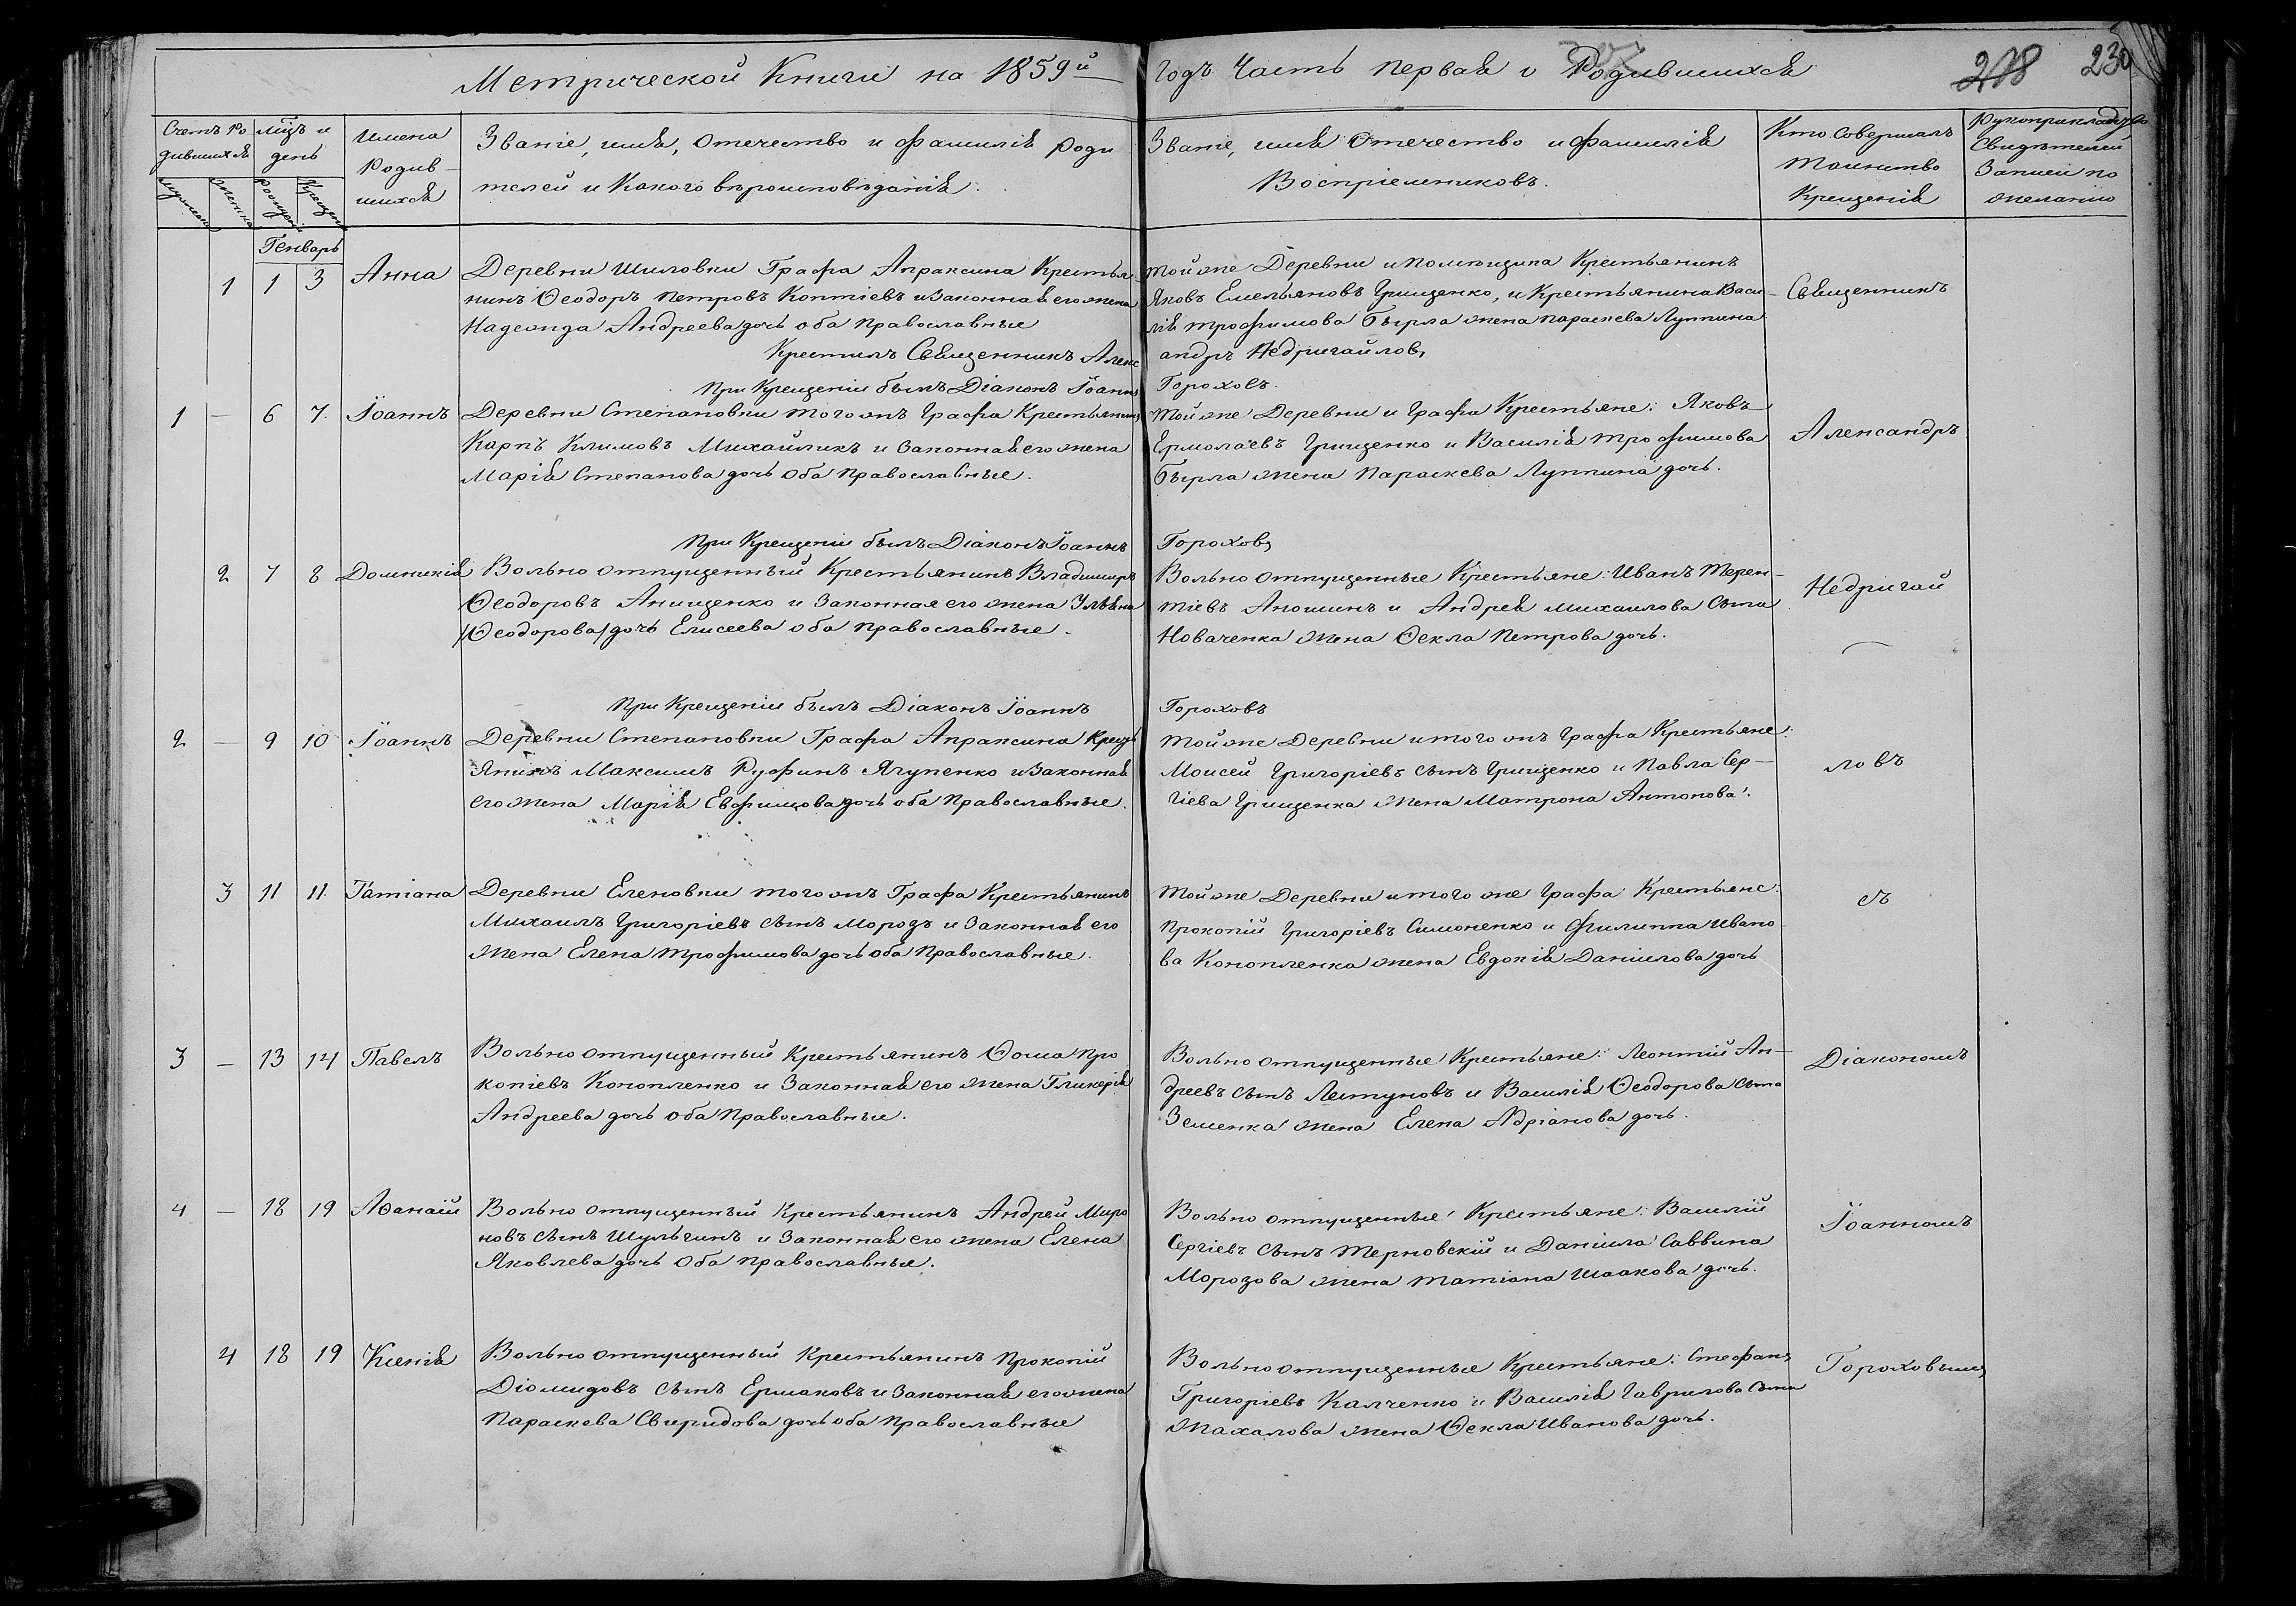 Метрической Книги на 1859й годъ Часть Первая о Родившихся
218 230
Счетъ Родившихся
мцъ и день
Имена Родившихся
Званіе, имя, Отечество и фамилія Родителей и Какого вѣроисповѣданія.
Званіе, имя Отечество и фамилія Воспріемниковъ.
Кто Совершалъ Таинство Крещенія
Рукоприкладство Свидѣтелей Записи по желанію
Генварь
1 1 3 Анна
Деревни Шиловки Графа Апраксина Крестья
нинъ Ѳеодоръ Петровъ Коптіевъ и Законная его жена
Надежда Андреева дочь оба Православные
Той же Деревни и помѣщика Крестьянинъ
Яковъ Емельяновъ Грищенко, и Крестьянина Васи
лія Трофимова Бырла жена Параскева Луппина
Священникъ
Крестилъ Священникъ Александръ Недригайловъ
При Крещеніи былъ Діаконъ Іоаннъ Гороховъ.
1 — 6 7 Іоаннъ
Деревни Степановки того жъ Графа Крестьянинъ
Карпъ Климовъ Михайликъ и Законная его жена
Марія Степанова дочь оба Православные.
Той же Деревни и Графа Крестьяне: Яковъ
Ермолаевъ Грищенко и Василія Трофимова
Бырла жена Параскева Луппина дочь.
Александръ
При Крещеніи былъ Діаконъ Іоаннъ Гороховъ
2 7 8 Домникія
Вольно отпущенный Крестьянинъ Владимиръ
Ѳеодоровъ Анищенко и Законная его жена Ульяна
/Ѳеодорова/ дочь Елисеева оба Православные.
Вольно отпущенные Крестьяне: Иванъ Терен-
тіевъ Аношинъ и Андрея Михаилова Сына
Новаченка жена Ѳекла Петрова дочь.
Недригай
При Крещеніи былъ Діаконъ Іоаннъ Гороховъ
2 — 9 10 Іоаннъ
Деревни Степановки Графа Апраксина Крест
янинъ Максимъ Руфинъ Ягупенко и Законная
его жена Марія Евфимова дочь оба Православные.
Той же Деревни и того жъ Графа Крестьяне:
Моисей Григоріевъ сынъ Грищенко и Павла Сер-
гіева Грищенка жена Матрона Антонова.
ловъ
3 11 11 Татіана
Деревни Еленовки того жъ Графа Крестьянинъ
Михаилъ Григоріевъ сынъ Морозъ и Законная его
жена Елена Трофимова дочь оба Православные.
Той же Деревни и того же Графа Крестьяне:
Прокопій Григоріевъ Симоненко и Филиппа Ивано
ва Конопленка жена Евдокія Даніилова дочь
съ
3 — 13 14 Павелъ
Вольно отпущенный Крестьянинъ Ѳома Про
копіевъ Конопленко и Законная его жена Гликерія
Андреева дочь оба Православные.
Вольно отпущенные Крестьяне: Леонтій Ан-
дреевъ сынъ Летуновъ и Василія Ѳеодорова сына
Земенка жена Елена Адріанова дочь.
Діакономъ
4 — 18 19 Аѳанасій
Вольно отпущенный Крестьянинъ Андрей Миро
новъ сынъ Шульгинъ и Законная его жена Елена
Яковлева дочь оба Православные.
Вольно отпущенные Крестьяне: Василій
Сергіевъ сынъ Терновскій и Даніила Саввина
Морозова жена Татіана Исаакова дочь.
Іоанномъ
4 18 19 Ксенія
Вольно отпущенный Крестьянинъ Прокопій
Діомидовъ сынъ Ермаковъ и Законная его жена
Параскева Свиридова дочь оба Православные
Вольно отпущенные Крестьяне: Стефанъ
Григоріевъ Калченко и Василія Гаврилова Сына
Махалова жена Ѳекла Иванова дочь.
Гороховымъ